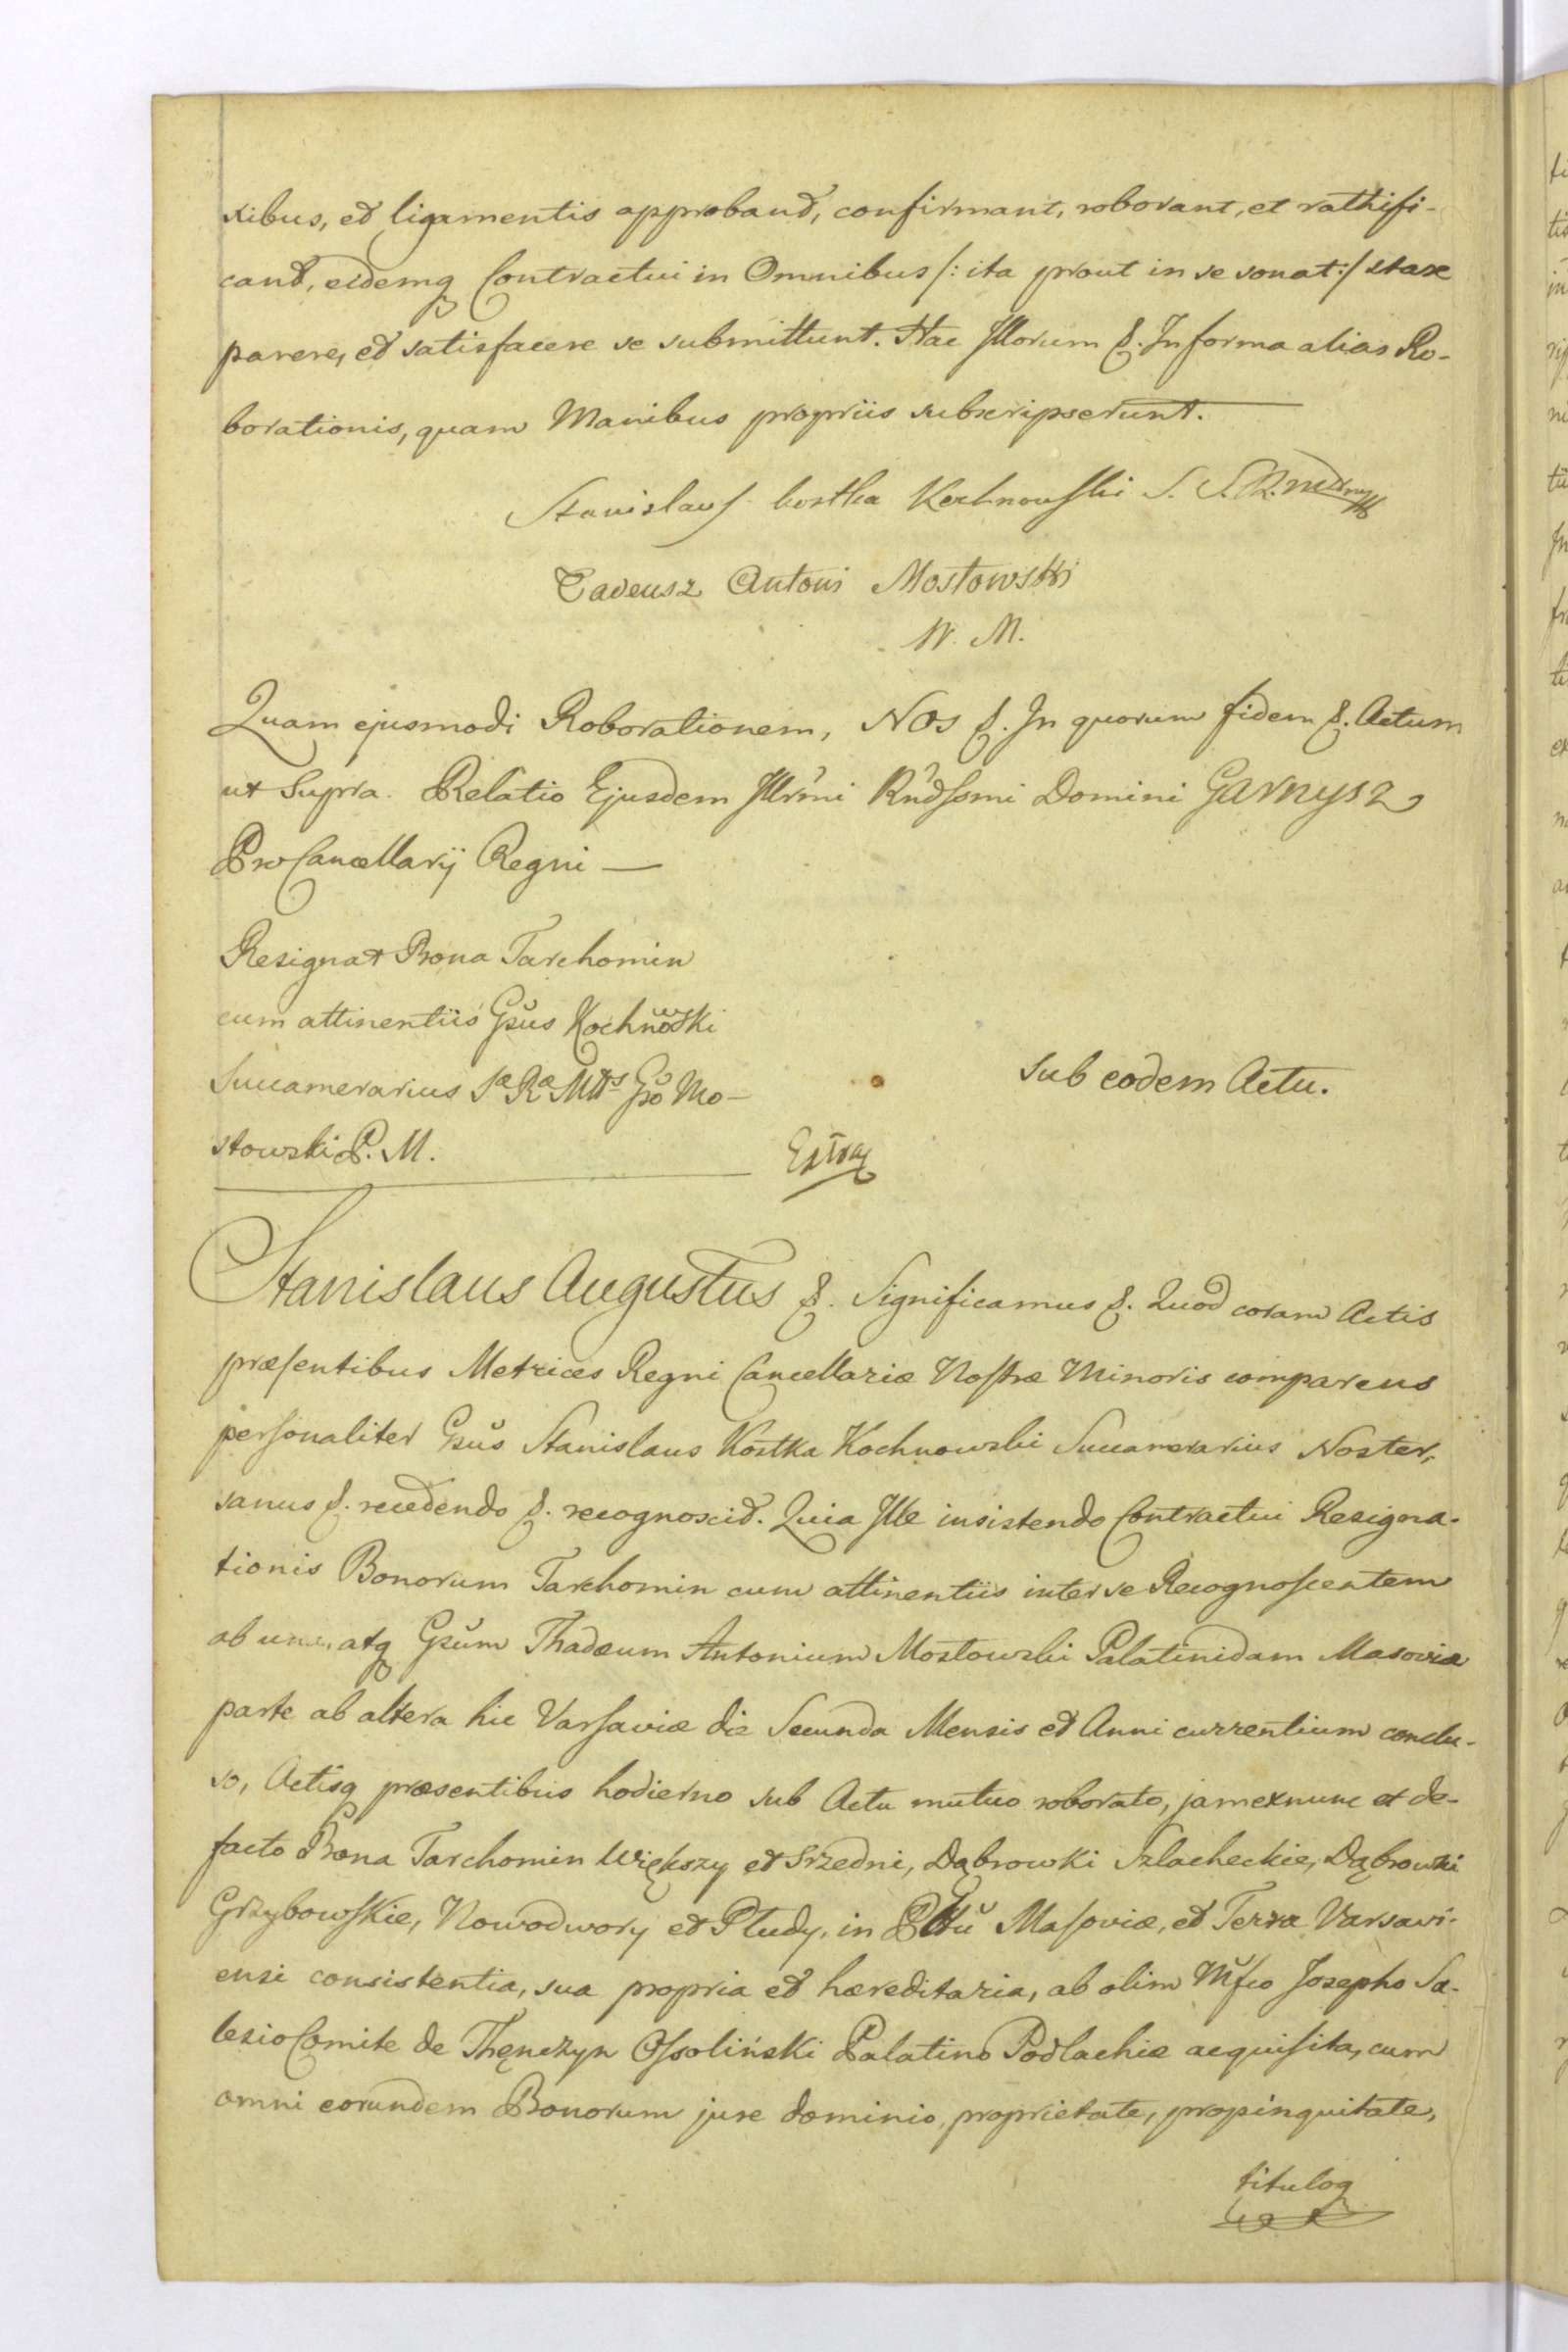 xibus, et ligamentis approband, confirmant, roborant, et rathifi-
cant, eidemq Contractui in Omnibus /: ita prout in se sonat :/ stare
parere, et satisfacere se submittunt. Hac Illorum &. In forma alias Ro-
borationis, quam Manibus propriis subscripserunt.
Stanislaus kostka Kochnowski S.
Tadeusz Antoni Mostowski
W. M.
Quam ejusmodi Roborationem, Nos &. In quorum fidem &. Actum
ut Supra. Relatio Ejusdem Illrmi Rndssmi Domini Garnysz
ProCancellarij Regni —
Resignat Bona Tarchomin
cum attinentiis Gsus Kochnowski
Succamerarius Sæ Ræ Mtts Gso Mo-
stowski P. M.
Sub eodem Actu.
Extrad
Stanislaus Augustus &. Significamus &. Quod coram Actis
præsentibus Metrices Regni Cancellariæ Nostræ Minoris comparens
personaliter Gsus Stanislaus Kostka Kochnowski Succamerarius Noster,
sanus &. recedendo &. recognoscit. Quia Ille insistendo Contractui Resigna-
tionis Bonorum Tarchomin cum attinentiis inter se Recognoscentem
ab una, atq Gsum Thadæum Antonium Mostowski Palatinidam Masoviæ
parte ab altera hic Varsaviæ die Secunda Mensis et Anni currentium conclu-
so, Actisq præsentibus hodierno sub Actu mutuo roborato, jam exnunc et de-
facto Bona Tarchomin Większy et Srzedni, Dąbrowki Szlacheckie, Dąbrowki
Grzybowskie, Nowodwory et Płudy, in Pttu Masoviæ, et Terra Varsavi-
ensi consistentia, sua propria et hæreditaria, ab olim Mfco Josepho Sa-
lesio Comite de Thęnczyn Ossoliński Palatino Podlachiæ acquisita, cum
omni eorundem Bonorum jure dominio, proprietate, propinquitate,
tituloq